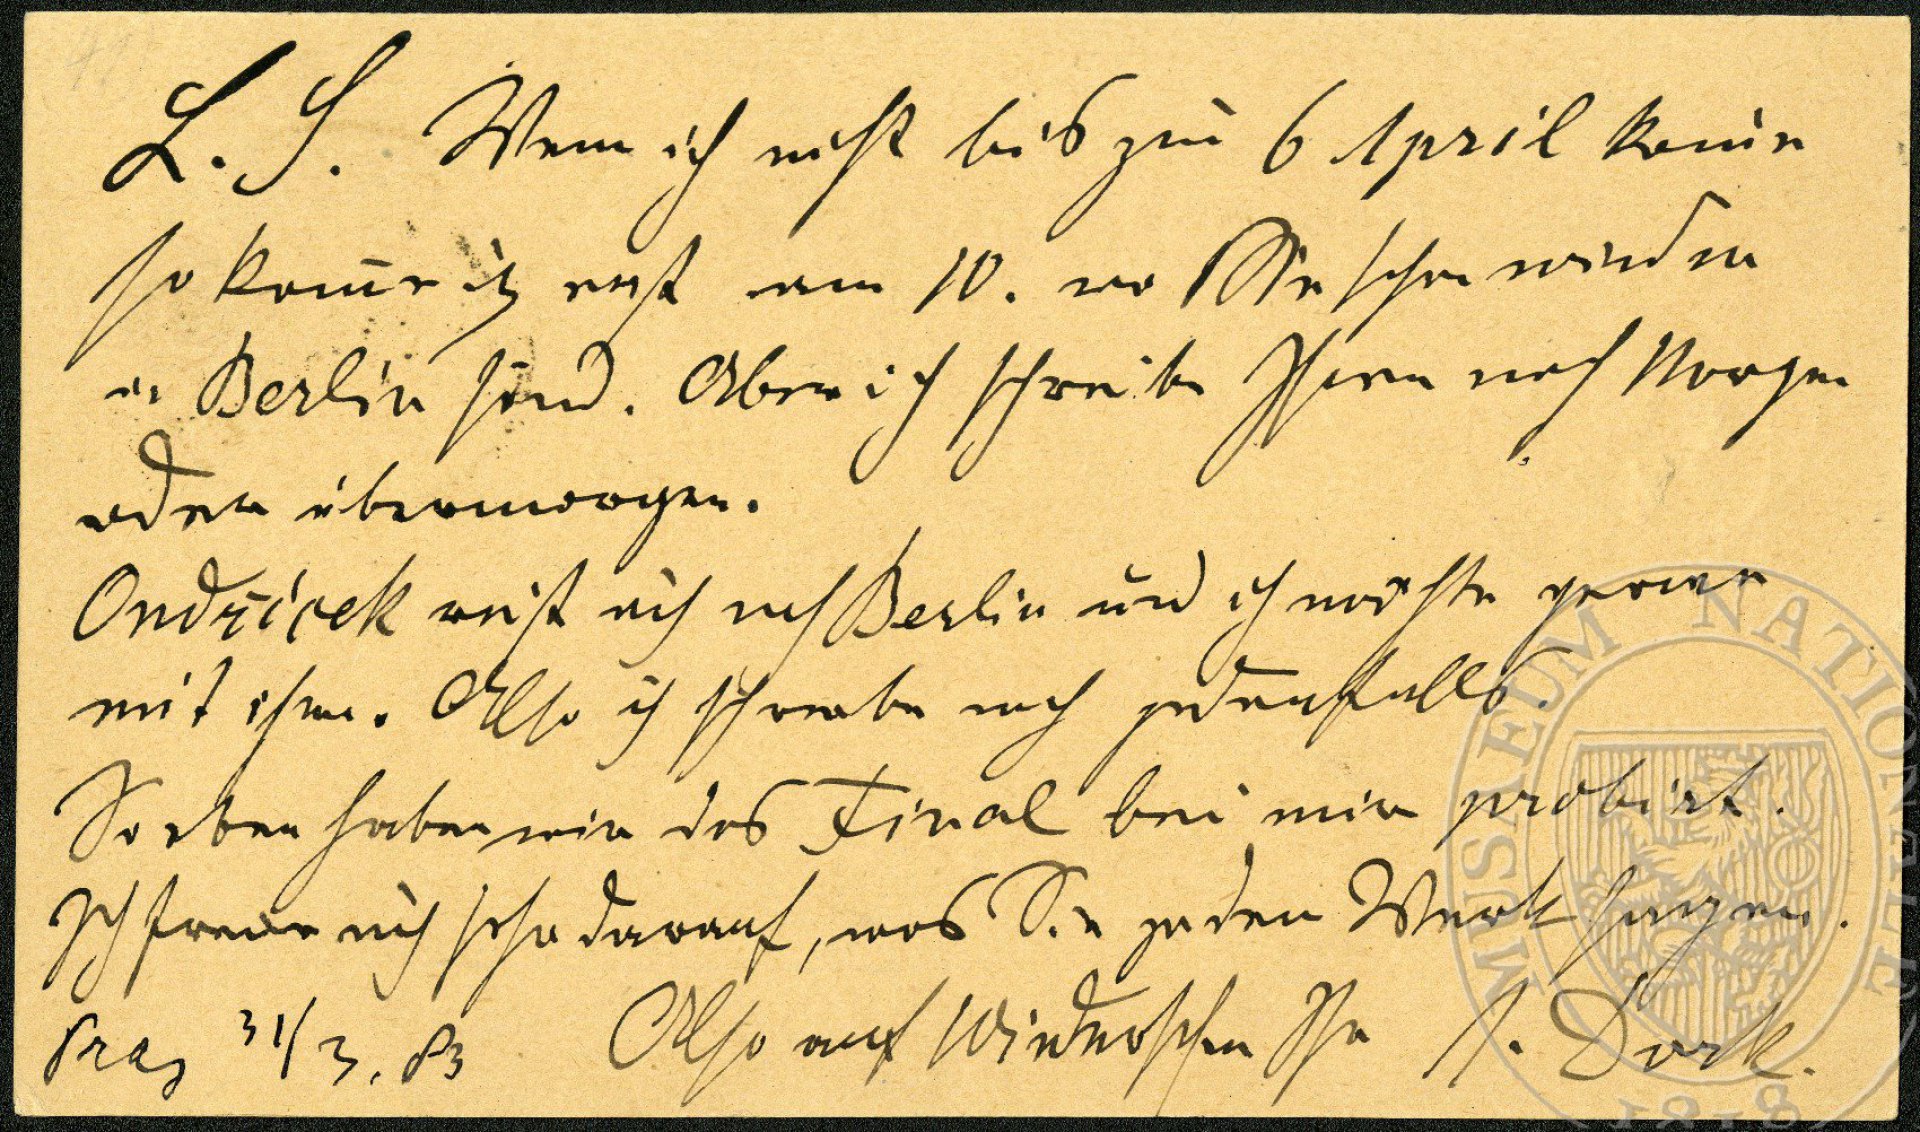 L. S. Wenn ich nicht bis zum 6 April kom̅e
so kom̅e ich erst am 10. wo Sie schon wieder
in Berlin sind. Aber ich schreibe Ihnen noch Morgen
oder übermorgen.
Ondříček reist auch nach Berlin und ich möchte gerne
mit ihm. Also ich schreibe noch jedenfalls.
So eben haben wir das Final bei mir probirt.
Ich freue mich schon darauf, was Sie zu dem Werk sagen.
Prag 31/3. 83 Also auf Wiedersehen Ihr A. Dvořák.
MUSAEUM NATIONALE
1818